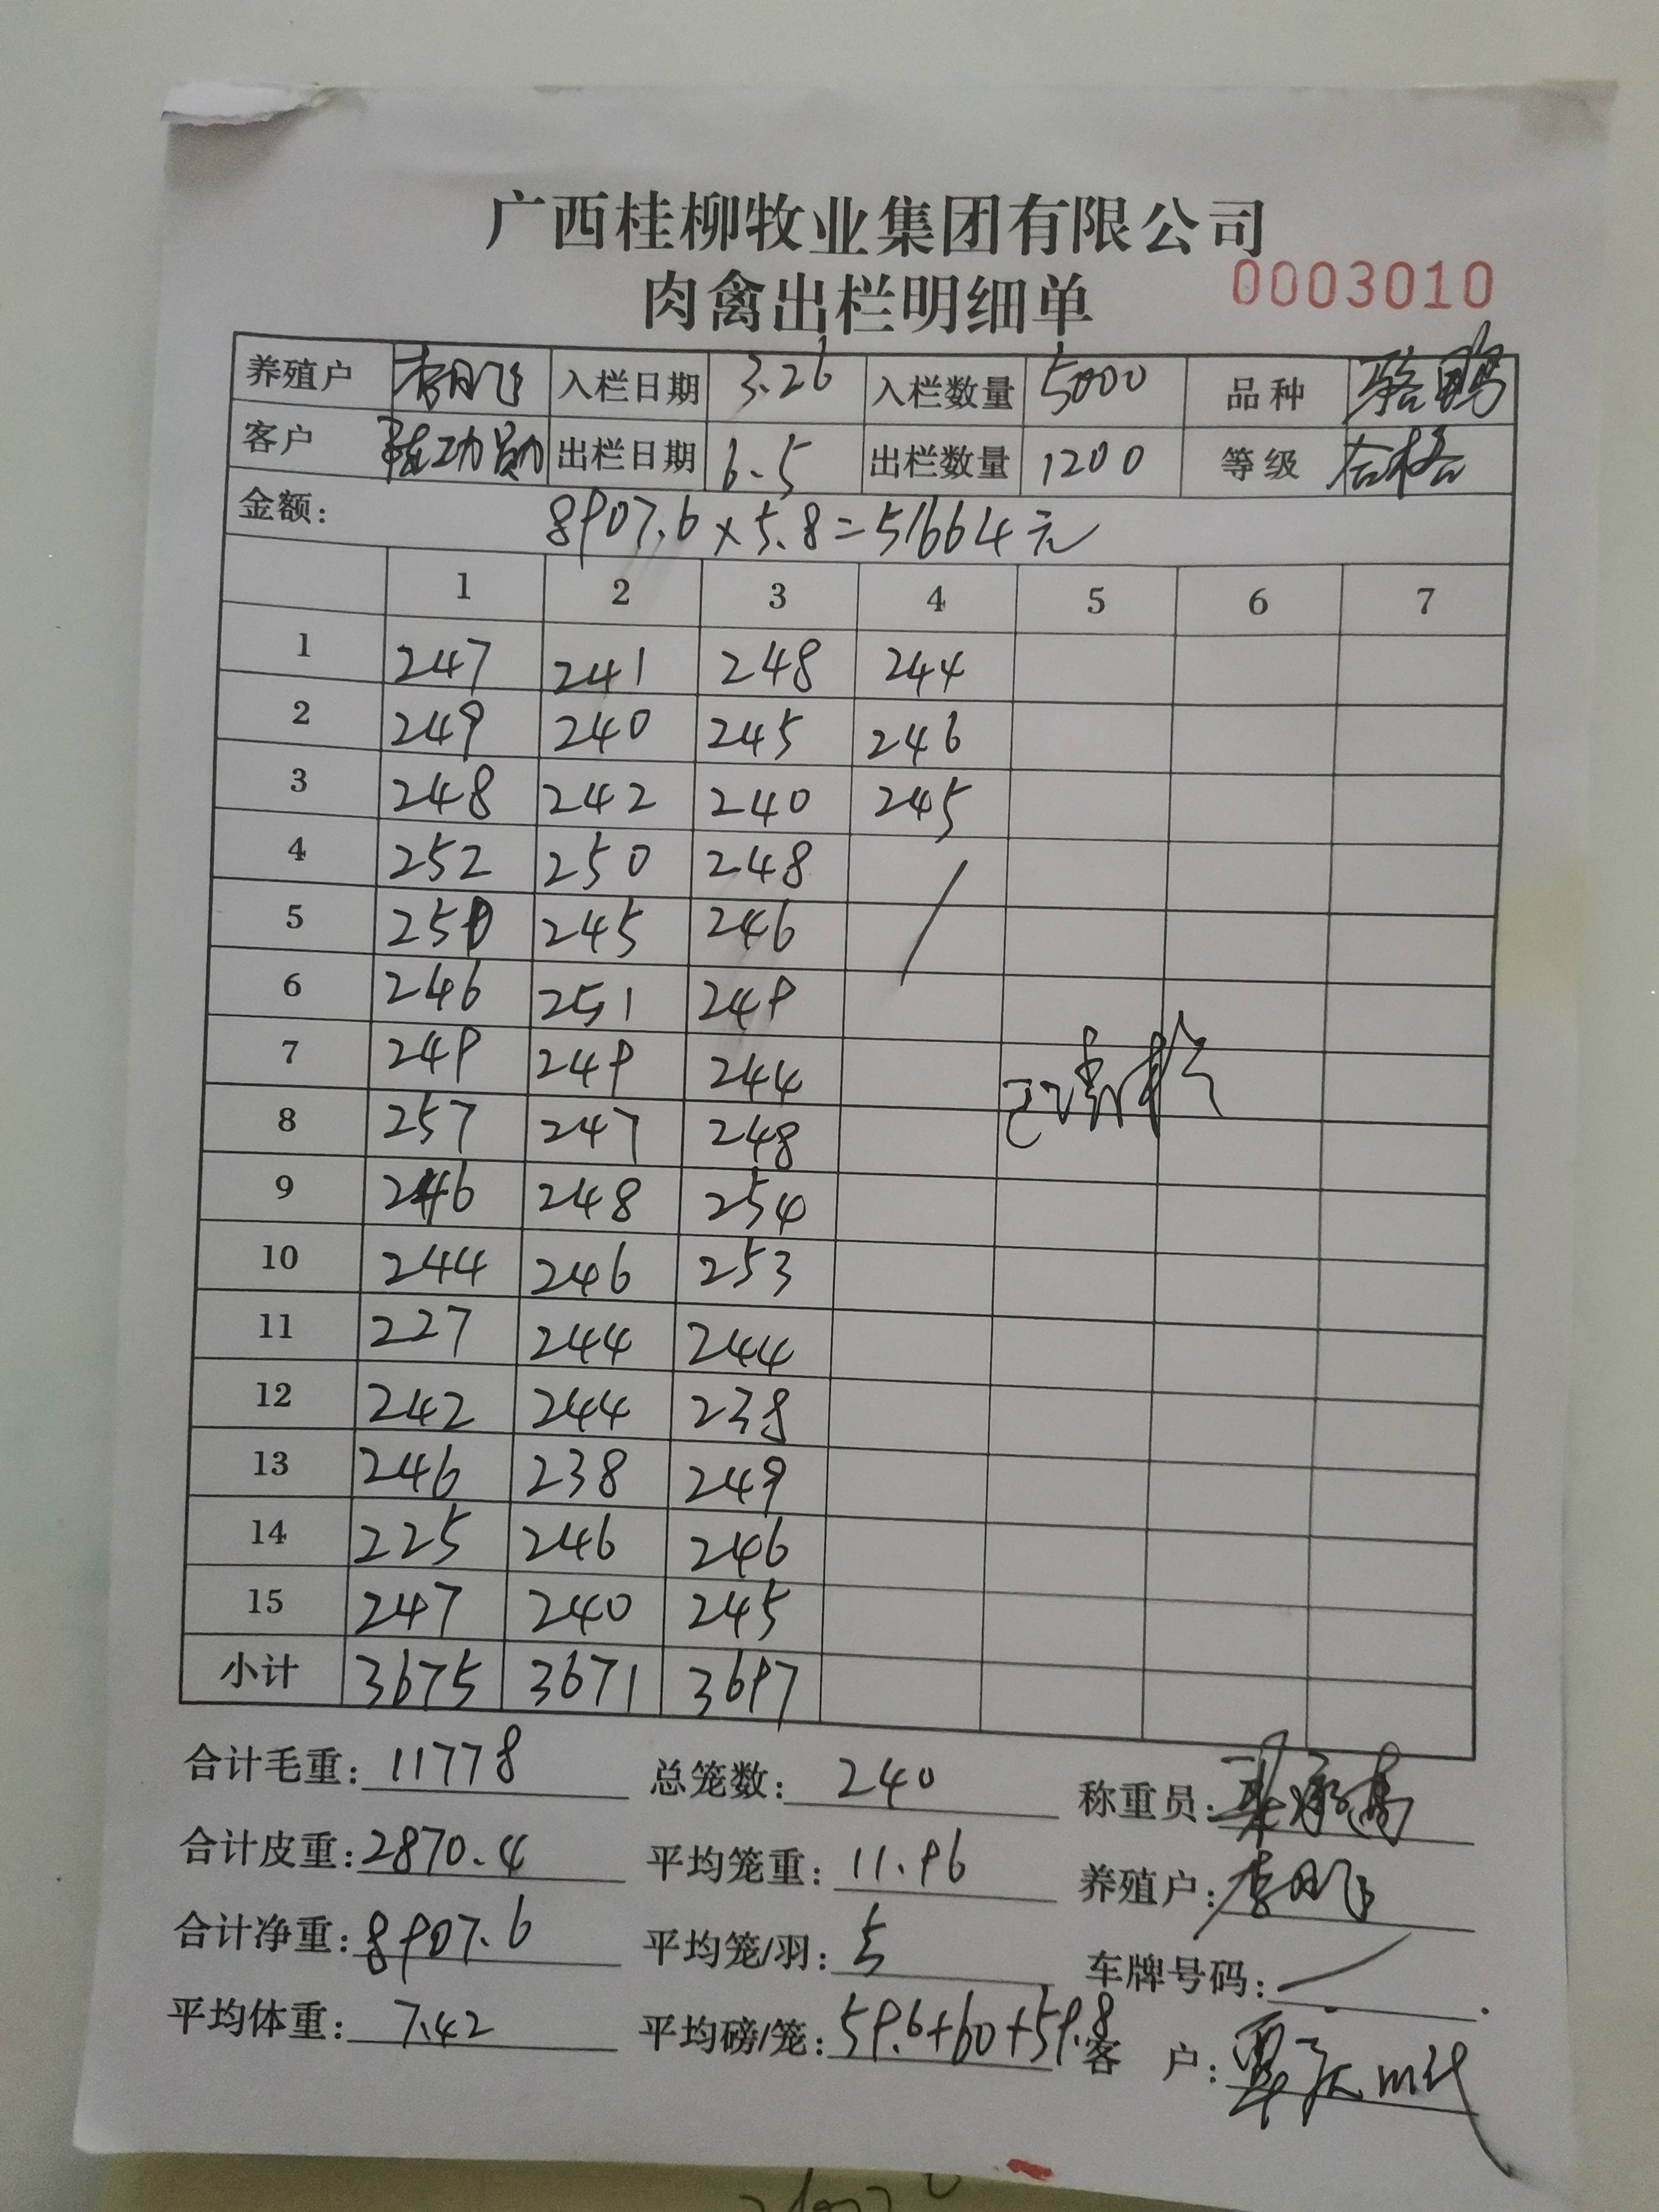 广西桂柳牧业集团有限公司
肉禽出栏明细单 0003010
养殖户 李鹏飞 入栏日期 3.26 入栏数量 5000 品种 骆鸭
客户 陆功勋 出栏日期 6.5 出栏数量 1200 等级 合格
金额: 8907.6×5.8=51664元
1 2 3 4 5 6 7
1 247 241 248 244
2 249 240 245 246
3 248 242 240 245
4 252 250 248 /
5 250 245 246
6 246 251 249
7 249 249 244
8 257 247 248
9 246 248 254
10 244 246 253
11 227 244 244
12 242 244 238
13 246 238 249
14 225 246 246
15 247 240 245
小计 3675 3671 3697
合计毛重: 11778 总笼数: 240 称重员:
合计皮重: 2870.4 平均笼重: 11.96 养殖户:
合计净重: 8907.6 平均笼/羽: 5 车牌号码: /
平均体重: 7.42 平均磅/笼: 59.6+60+59.8 客 户: